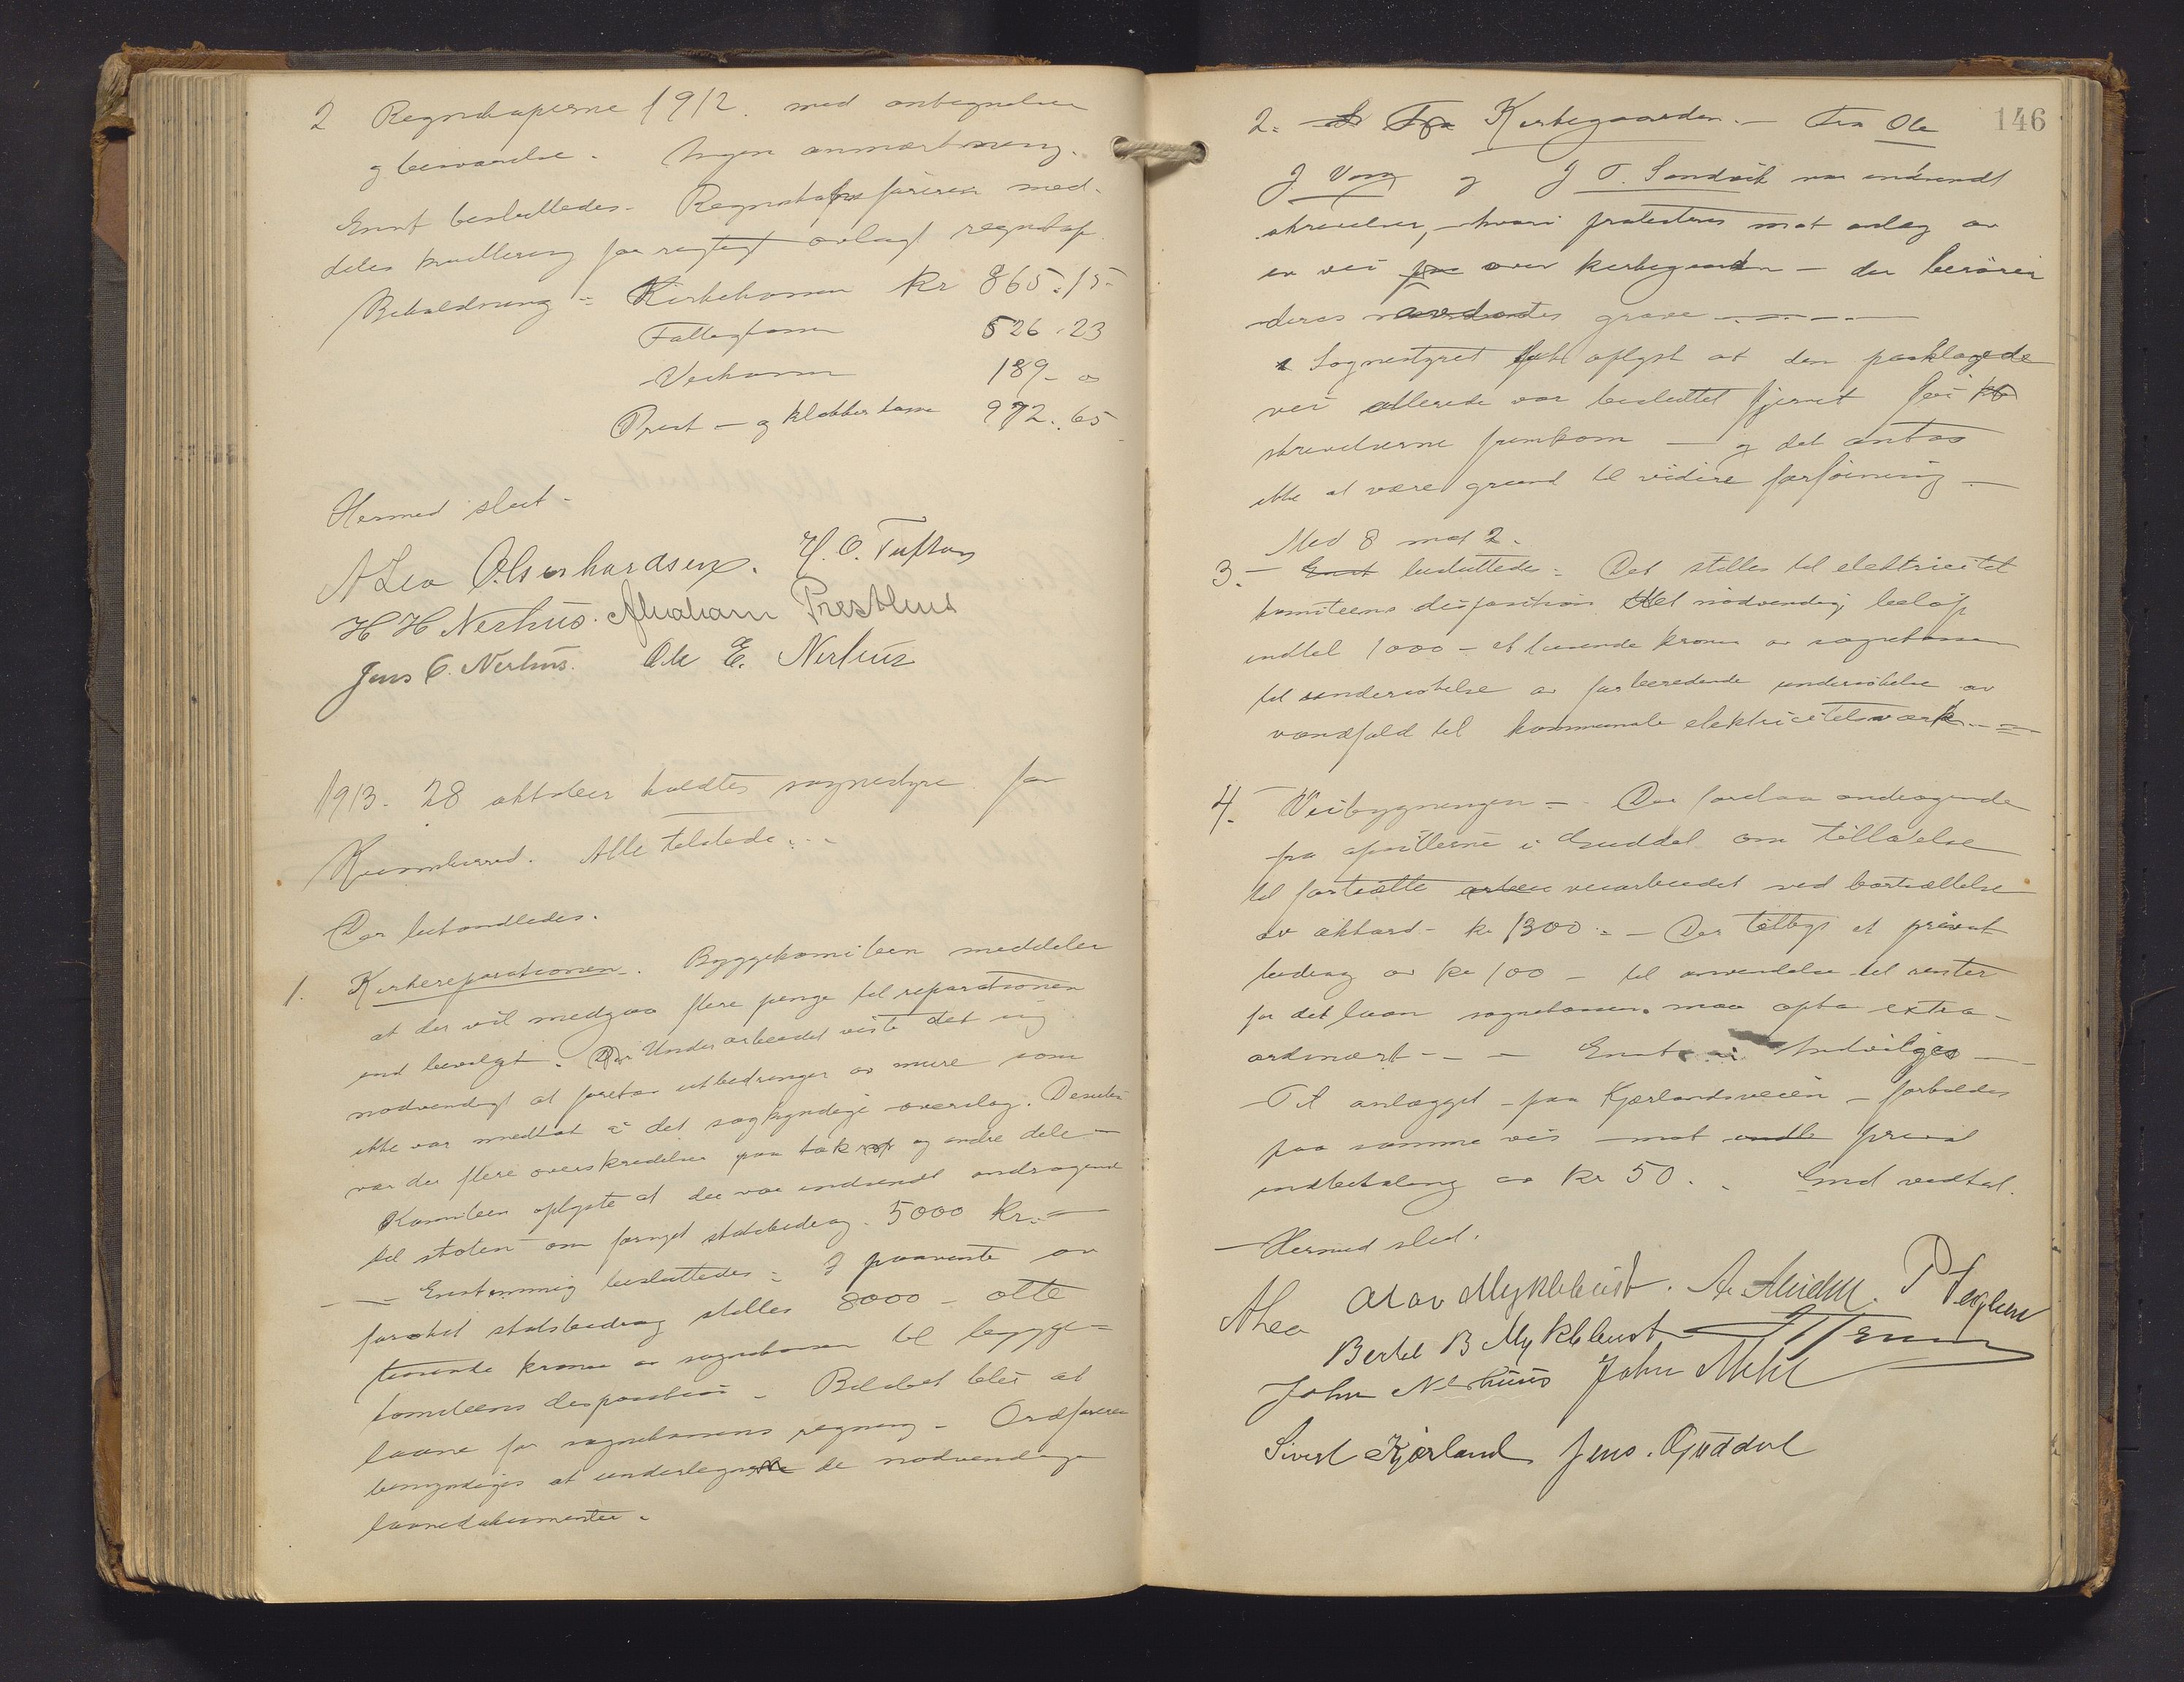 2 Regnskaperne 1912. med antegnelser
og besvarelse. Ingen anmerkning.
Enst besluttedes. Regnskapsföreren med-
deles kvittering for rigtigt avlagt regnskap
Beholdning = Kirkekassen Kr 865.15-
Fattigkassen 526.23
Veikassen 189-
Prest- og klokkerkasse 972.65
Hermed slut-
A Lea O. H. O. Tufton
H H Nerhus. Abraham Presthus
Jens C. Nerhus. Ole E. Nerhus
1913. 28 oktober holdtes sognestyre for
Kvinnherred. Alle tilstede.
Der behandledes.
1. Kirkereparationen. Byggekomiteen meddeler
at der vil medgaa flere penge til reparationen
end bevilget. Under arbeidet viste det sig
nödvendigt at foreta utbedringer av mure som
ikke var medtat i det sagkyndige overslag. Desuten
var der flere overskridelser paa tak og andre dele-
Komiteen oplyste at der var indsendt andragende
til staten om forøget statsbidrag. 5000 kr.-
- Enstemmig besluttedes: I paavente av
forøket statsbidrag stilles 8000 - otte
tusende kroner av sognekassen til bygge-
komiteens disposition - Belöbet blir at
laane for sognekassens regning - Ordföreren
bemyndiges at underskrive de nødvendige
laanedokumenter.
146
2. Fra Kirkegaarden.- Fra Ole
J Vaag og J T. Sandvik var indsendt
skrivelser, hvori protesteres mot anlæg av
en vei over kirkegaarden - der berörer
deres grave
Sognestyret oplyst at den paaklagede
vei allerede var besluttet fjernet för
skrivelserne fremkom - og det antas
ikke at være grund til videre forföining -
Med 8 mot 2.
3.- Enst besluttedes: Det stilles til elektricitet
komiteens disposition det nødvendig belöp
indtil 1000 - et tusende kroner av sognekassen
til undersökelse av forberedende undersökelse av
vandfald til kommunale elektricitetsværk.-
4. Veibygningen - Der forelaa andragende
fra opsitterne i Guddal om tilladelse
til fortsætte veiarbeidet ved bortsættelse
av akkord - kr 1300 - Der tilbys et privat
bidrag av kr 100 - til anvendelse til renter
for det laan sognekassen maa opta extra-
ordinært - - Enst Indvilges -
Til anlægget - paa Kjærlandsveien - forholdes
paa samme vis - mot privat
indbetaling av kr 50. Enst vedtat.
Hermed slut.
A Lea Olav Myklebust.
Bertel B Myklebust
John Nerhuus John Mehl
Sivert Kjærland Jens. Guddal